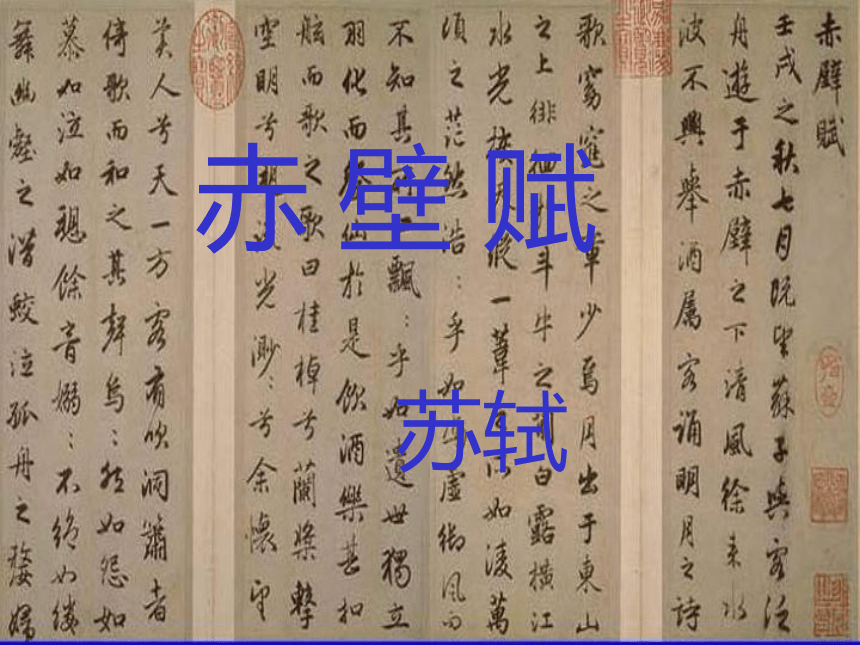 赤壁赋
苏轼
赤壁賦
壬戌之秋七月既望蘇子與客泛
舟遊于赤壁之下清風徐来水
波不興舉酒属客誦明月之詩
歌窈窕之章少焉月出于東山
之上徘徊於斗牛之間白露橫江
水光接天縱一葦之所如淩萬
頃之茫然浩:乎如馮虛御風而
不知其所止飄:乎如遺世獨立
羽化而登仙於是飲酒樂甚扣
舷而歌之歌曰桂棹兮蘭槳擊
空明兮溯流光渺:兮余懷望
美人兮天一方客有吹洞簫者
倚歌而和之其聲烏:然如怨如
慕如泣如餘音嫋:不絕如縷
舞幽壑之潛蛟泣孤舟之嫠婦